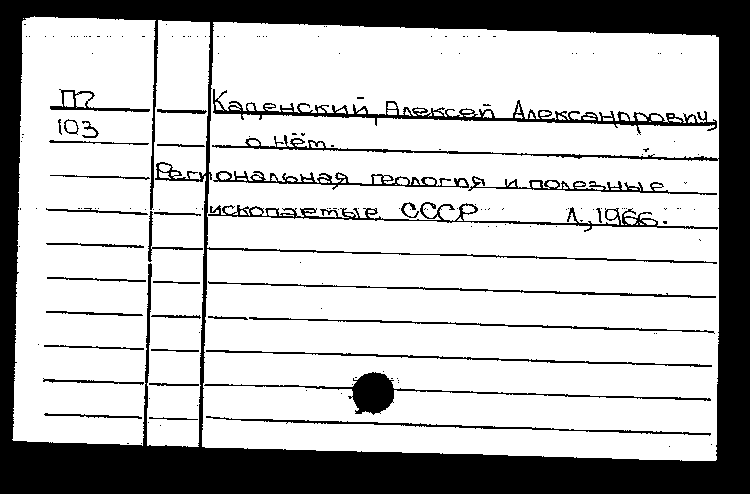 П7 Каденский, Алексей Александрович,
103 о нём.
Региональная геология и полезные
ископаемые СССР Л., 1966.